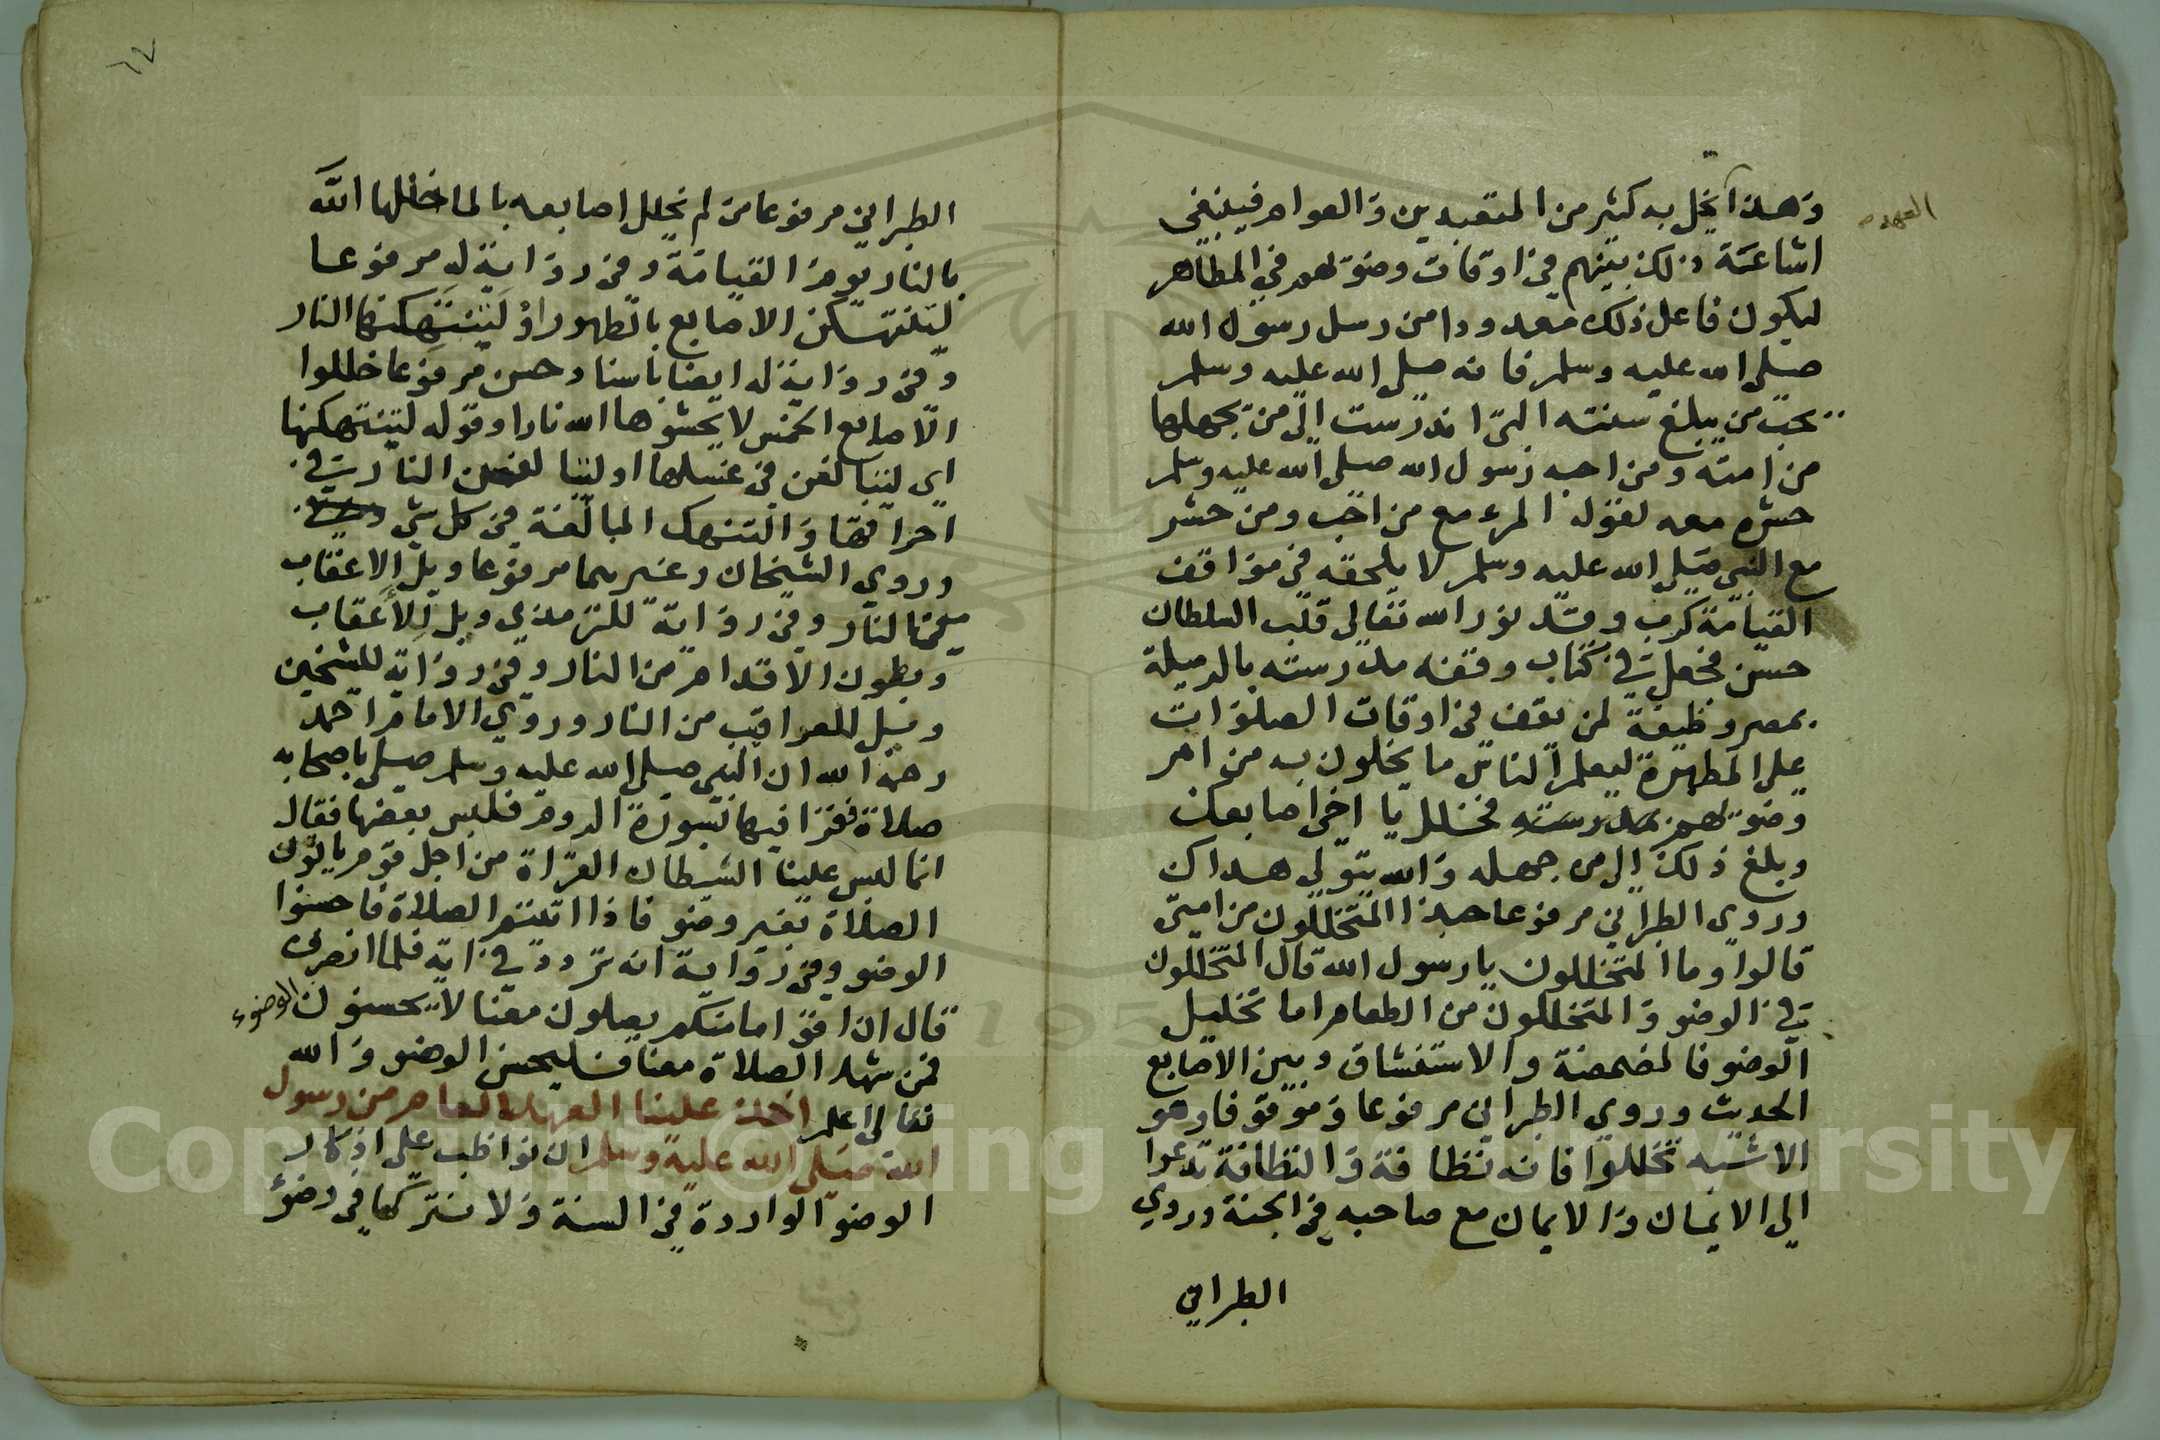 العهود
وهذا يخل به كثير من المتعبدين والعوام فينبغي
اشاعة ذلك بينهم في اوقات وضوئهم في المطاهر
ليكون فاعل ذلك معدودا من رسل رسول الله
صلى الله عليه وسلم فانه صلى الله عليه وسلم
يحب من يبلغ سنته التي اندرست الى من يجهلها
من امته ومن احبه رسول الله صلى الله عليه وسلم
حشر معه لقوله المرء مع من احب ومن حشر
مع النبي صلى الله عليه وسلم لا يلحقه في مواقف
القيامة كرب وقد نور الله تعالى قلب السلطان
حسن فجعل في كتاب وقفه مدرسته بالرميلة
بمصر وظيفة لمن يقف في اوقات الصلوات
على المطهرة ليعلم الناس ما يخلون به من امر
وضوئهم بمدرسته فخلل يا اخي اصابعك
وبلغ ذلك الى من جهله والله يتولى هداك
وروى الطبراني مرفوعا حبذا المتخللون من امتي
قالوا وما المتخللون يا رسول الله قال المتخللون
في الوضو والمتخللون من الطعام اما تخليل
الوضو فالمضمضة والاستنشاق وبين الاصابع
الحديث وروى الطبراني مرفوعا وموقوفا وهو
الاشبه تخللوا فانه نظافة والنظافة تدعوا
الى الايمان والايمان مع صاحبه في الجنة وروى
الطبراني
٦٧
الطبراني مرفوعا من لم يخلل اصابعه بالما خللها الله
بالنار يوم القيامة وفي رواية له مرفوعا
لتنتهكن الاصابع بالطهور او لتنتهكنها النار
وفي رواية له ايضا باسناد حسن مرفوعا خللوا
الاصابع الخمس لا يحشوها الله نارا وقوله لتنتهكنها
اي لتبالغن في غسلها او لتبالغن النار في
احراقها والتنهك المبالغة في كل شي
وروى الشيخان وغيرهما مرفوعا ويل للاعقاب
من النار وفي رواية للترمذي ويل للأعقاب
وبطون الاقدام من النار وفي رواية للشيخين
ويل للعراقيب من النار وروى الامام احمد
رحمه الله ان النبي صلى الله عليه وسلم صلى باصحابه
صلاة فقرا فيها بسورة الروم فلبس بعضها فقال
انما لبس علينا الشيطان القراة من اجل قوم ياتون
الصلاة بغير وضو فاذا اتيتم الصلاة فاحسنوا
الوضو وفي رواية انه تردد في اية فلما انصرف
قال ان اقواما منكم يصلون معنا لا يحسنون الوضوء
فمن شهد الصلاة معنا فليحسن الوضو والله
تعالى اعلم اخذ علينا العهد العام من رسول
الله صلى الله عليه وسلم ان نواظب على اذكار
الوضو الواردة في السنة ولا نتركها في وضؤ
Copyright © King Saud University